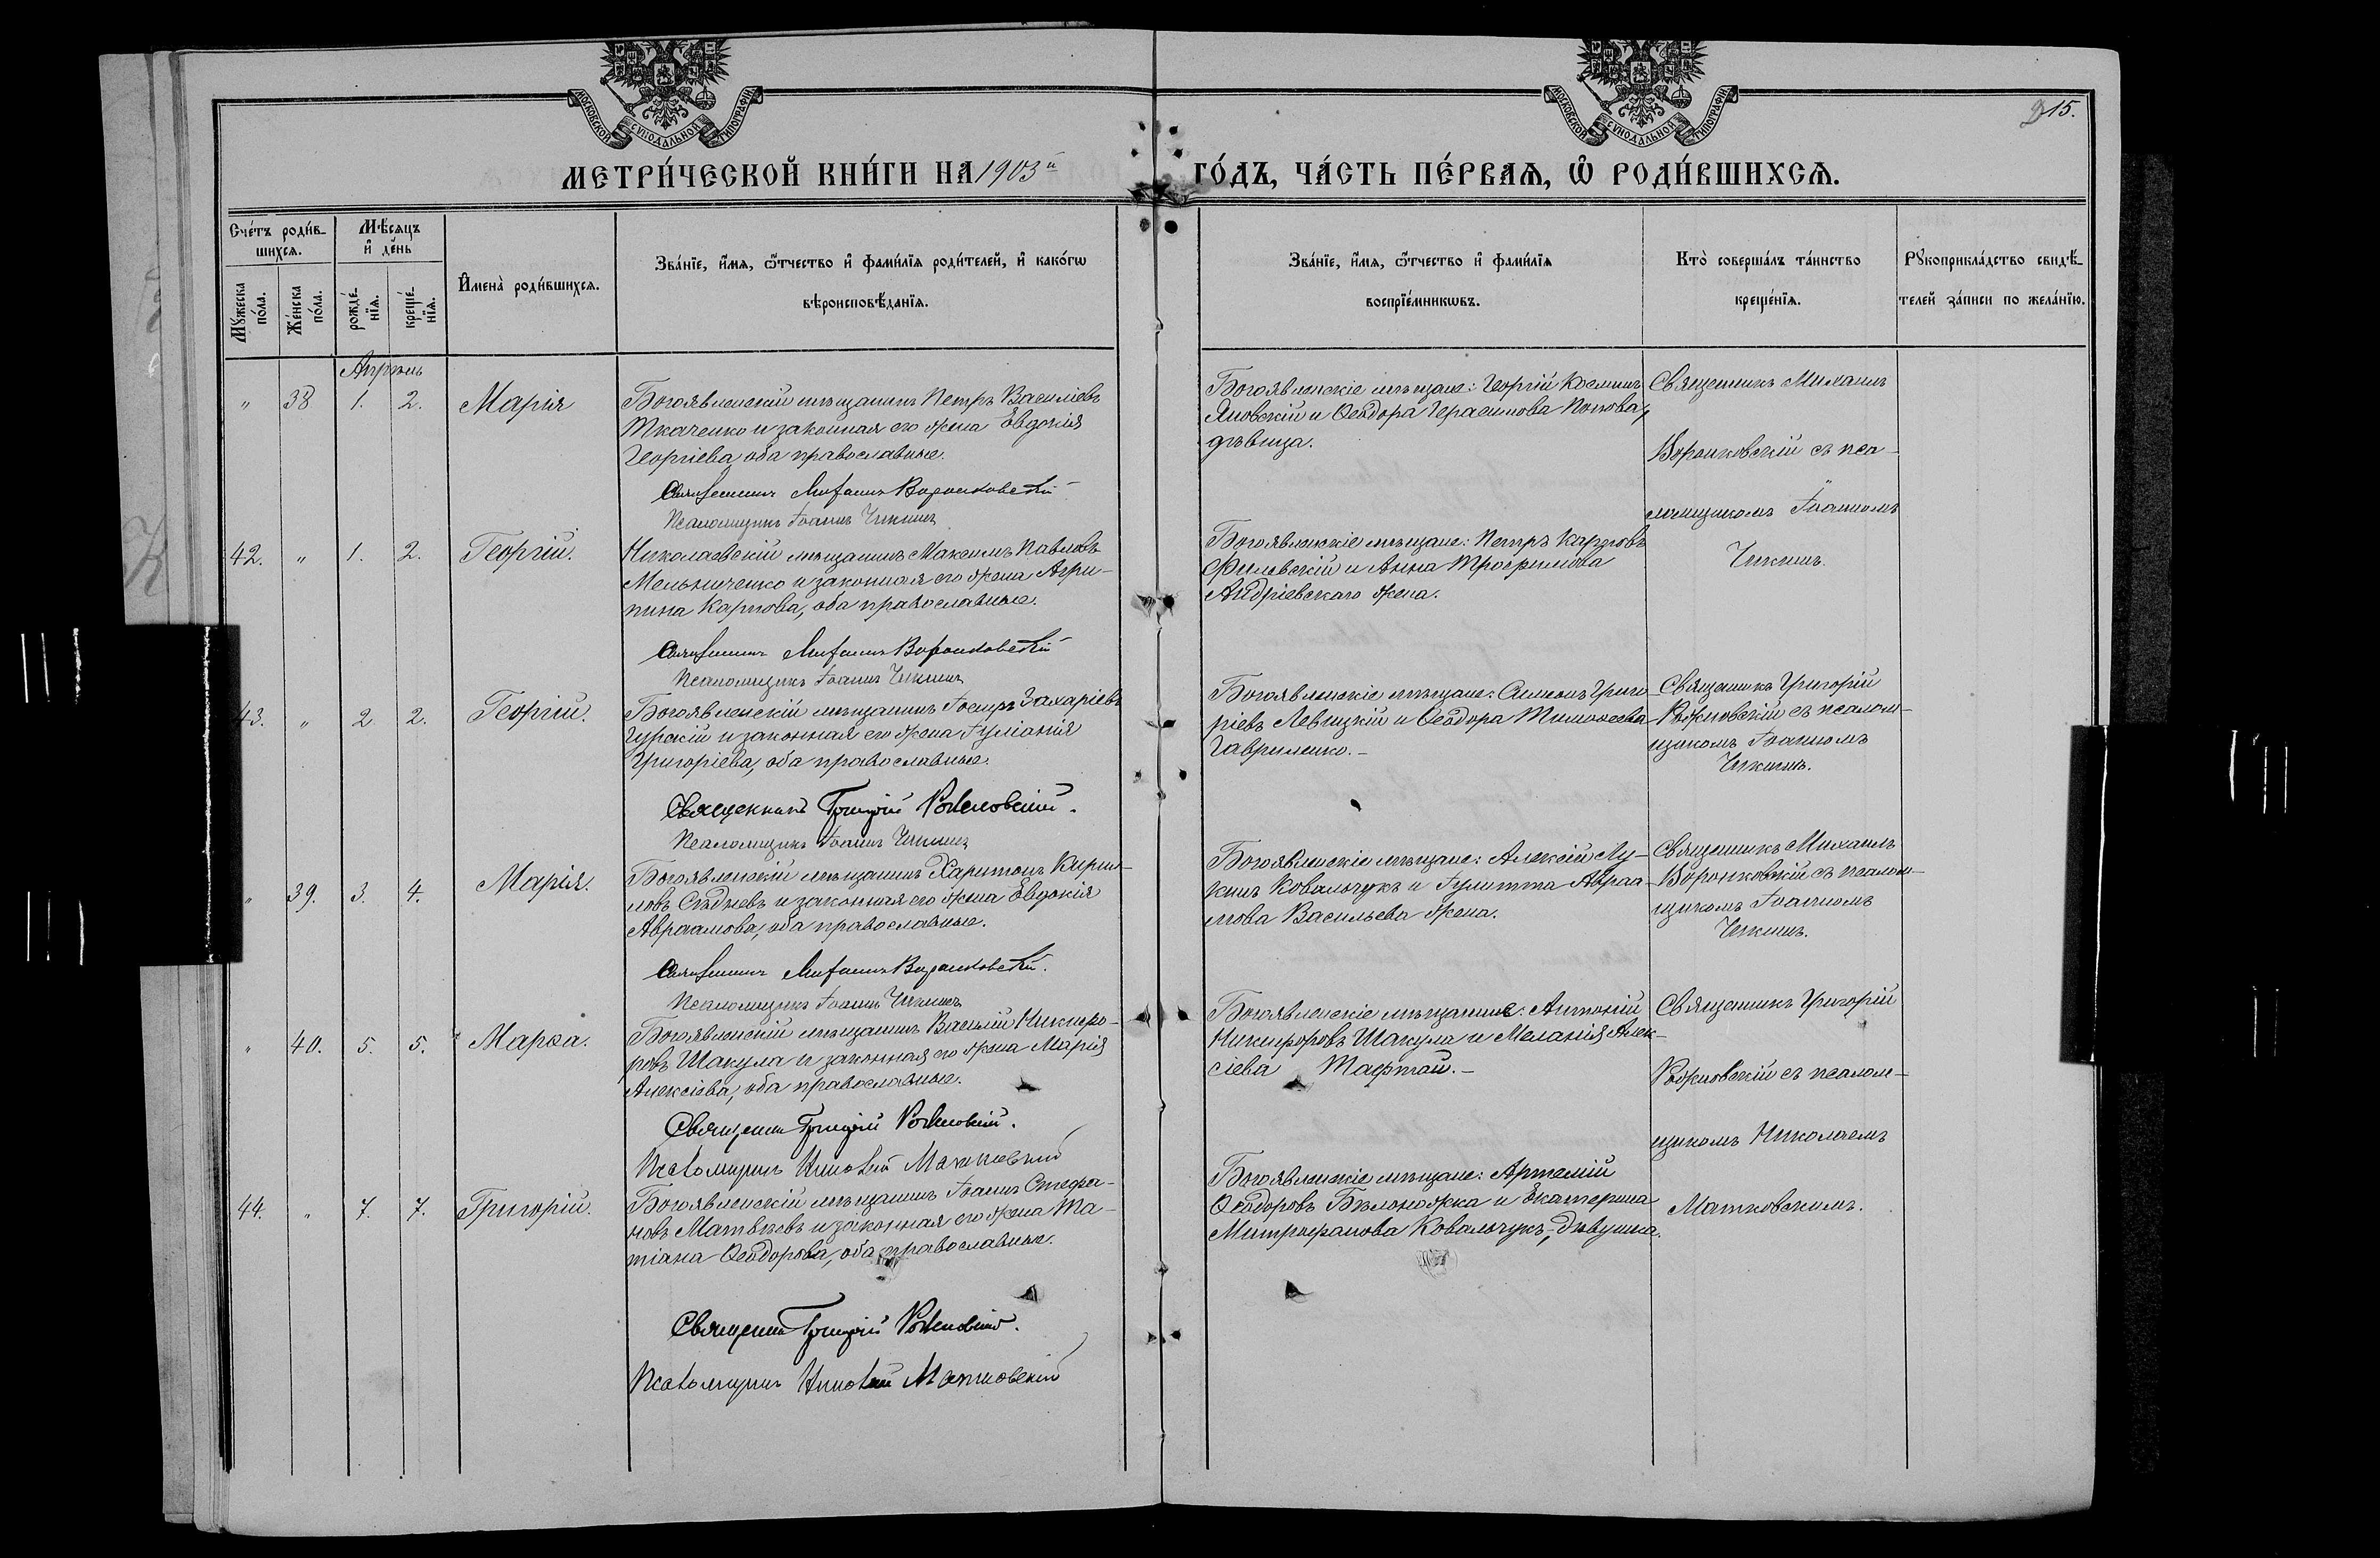 МОСКОВСКОЙ СѴНОДАЛЬНОЙ ТИПОГРАФІИ
МОСКОВСКОЙ СѴНОДАЛЬНОЙ ТИПОГРАФІИ
215.
МЕТРИ́ЧЕСКОЙ КНИ́ГИ НА 1903й
ГО́ДЪ, ЧА́СТЬ ПЕ́РВАѦ, Ѡ҆ РОДИ́ВШИХСѦ.
Сче́тъ роди́в-
шихсѧ.
Мꙋжеска по́ла.
Же́нска по́ла.
Мѣ́сѧцъ
и҆ де́нь
рожде́-нїѧ.
креще́-нїѧ.
И҆мена̀ роди́вшихсѧ.
Зва́нїе, и҆́мѧ, ѻ҆́тчество и҆ фами́лїѧ роди́телей, и҆ како́гѡ
вѣроисповѣ́данїѧ.
Зва́нїе, и҆́мѧ, ѻ҆́тчество и҆ фами́лїѧ
воспрїе́мникѡвъ.
Кто̀ соверша́лъ та́инство
креще́нїѧ.
Рꙋкоприкла́дство свидѣ́-
телей за́писи по жела́нїю.
Апрѣль
" 38 1. 2. Марія
Богоявленскій мѣщанинъ Петръ Василіевъ
Ткаченко и законная его жена Евдокія
Георгіева, оба православные.
Священникъ Михаилъ Воронковскій
Псаломщикъ Іоаннъ Чикинъ
Богоявленскіе мѣщане: Георгій Косминъ
Яновскій и Ѳеодора Герасимова Попова,
дѣвица.
Священникъ Михаилъ
Воронковскій съ пса-
ломщикомъ Іоанномъ
Чикинъ.
42. " 1. 2. Георгій.
Николаевскій мѣщанинъ Максимъ Павловъ
Мельниченко и законная его жена Агри-
пина Карпова, оба православные.
Священникъ Михаилъ Воронковскій
Псаломщикъ Іоаннъ Чикинъ
Богоявленскіе мѣщане: Петръ Карповъ
Филевскій и Анна Трофимова
Андріевскаго жена.
43. " 2. 2. Георгій.
Богоявленскій мѣщанинъ Іосифъ Захаріевъ
Гурскій и законная его жена Іуліанія
Григоріева, оба православные.
Священникъ Григорій Рожновскій.
Псаломщикъ Іоаннъ Чикинъ
Богоявленскіе мѣщане: Симеонъ Григо-
ріевъ Левицкій и Ѳеодора Тимоѳеева
Гавриленко.-
Священникъ Григорій
Рожновскій съ псалом-
щикомъ Іоанномъ
Чикинъ.
" 39. 3. 4. Марія.
Богоявленскій мѣщанинъ Харитонъ Кирил-
ловъ Сѣдневъ и законная его жена Евдокія
Авраамова, оба православные.
Священникъ Михаилъ Воронковскій.
Псаломщикъ Іоаннъ Чикинъ
Богоявленскіе мѣщане: Алексій Лу-
кинъ Ковальчукъ и Іулитта Авраа-
мова Васильева жена.
Священникъ Михаилъ
Воронковскій съ псалом-
щикомъ Іоанномъ
Чикинъ.
" 40. 5. 5. Марѳа.
Богоявленскій мѣщанинъ Василій Никифо-
ровъ Шакула и законная его жена Марія
Алексіева, оба православные.
Священникъ Григорій Рожновскій.
Псаломщикъ Николай Матковскій
Богоявленскіе мѣщанине: Антоній
Никифоровъ Шакула и Меланія Алек-
сіева Тафтай.-
Священникъ Григорій
Рожновскій съ псалом-
щикомъ Николаемъ
Матковскимъ.
44. " 7. 7. Григорій.
Богоявленскій мѣщанинъ Іоаннъ Стефа-
новъ Матвѣевъ и законная его жена Та-
тіана Ѳеодорова, оба православные.
Священникъ Григорій Рожновскій.
Псаломщикъ Николай Матковскій
Богоявленскіе мѣщане: Артемій
Ѳеодоровъ Бѣлоножка и Екатерина
Митрофанова Ковальчукъ, дѣвушка.